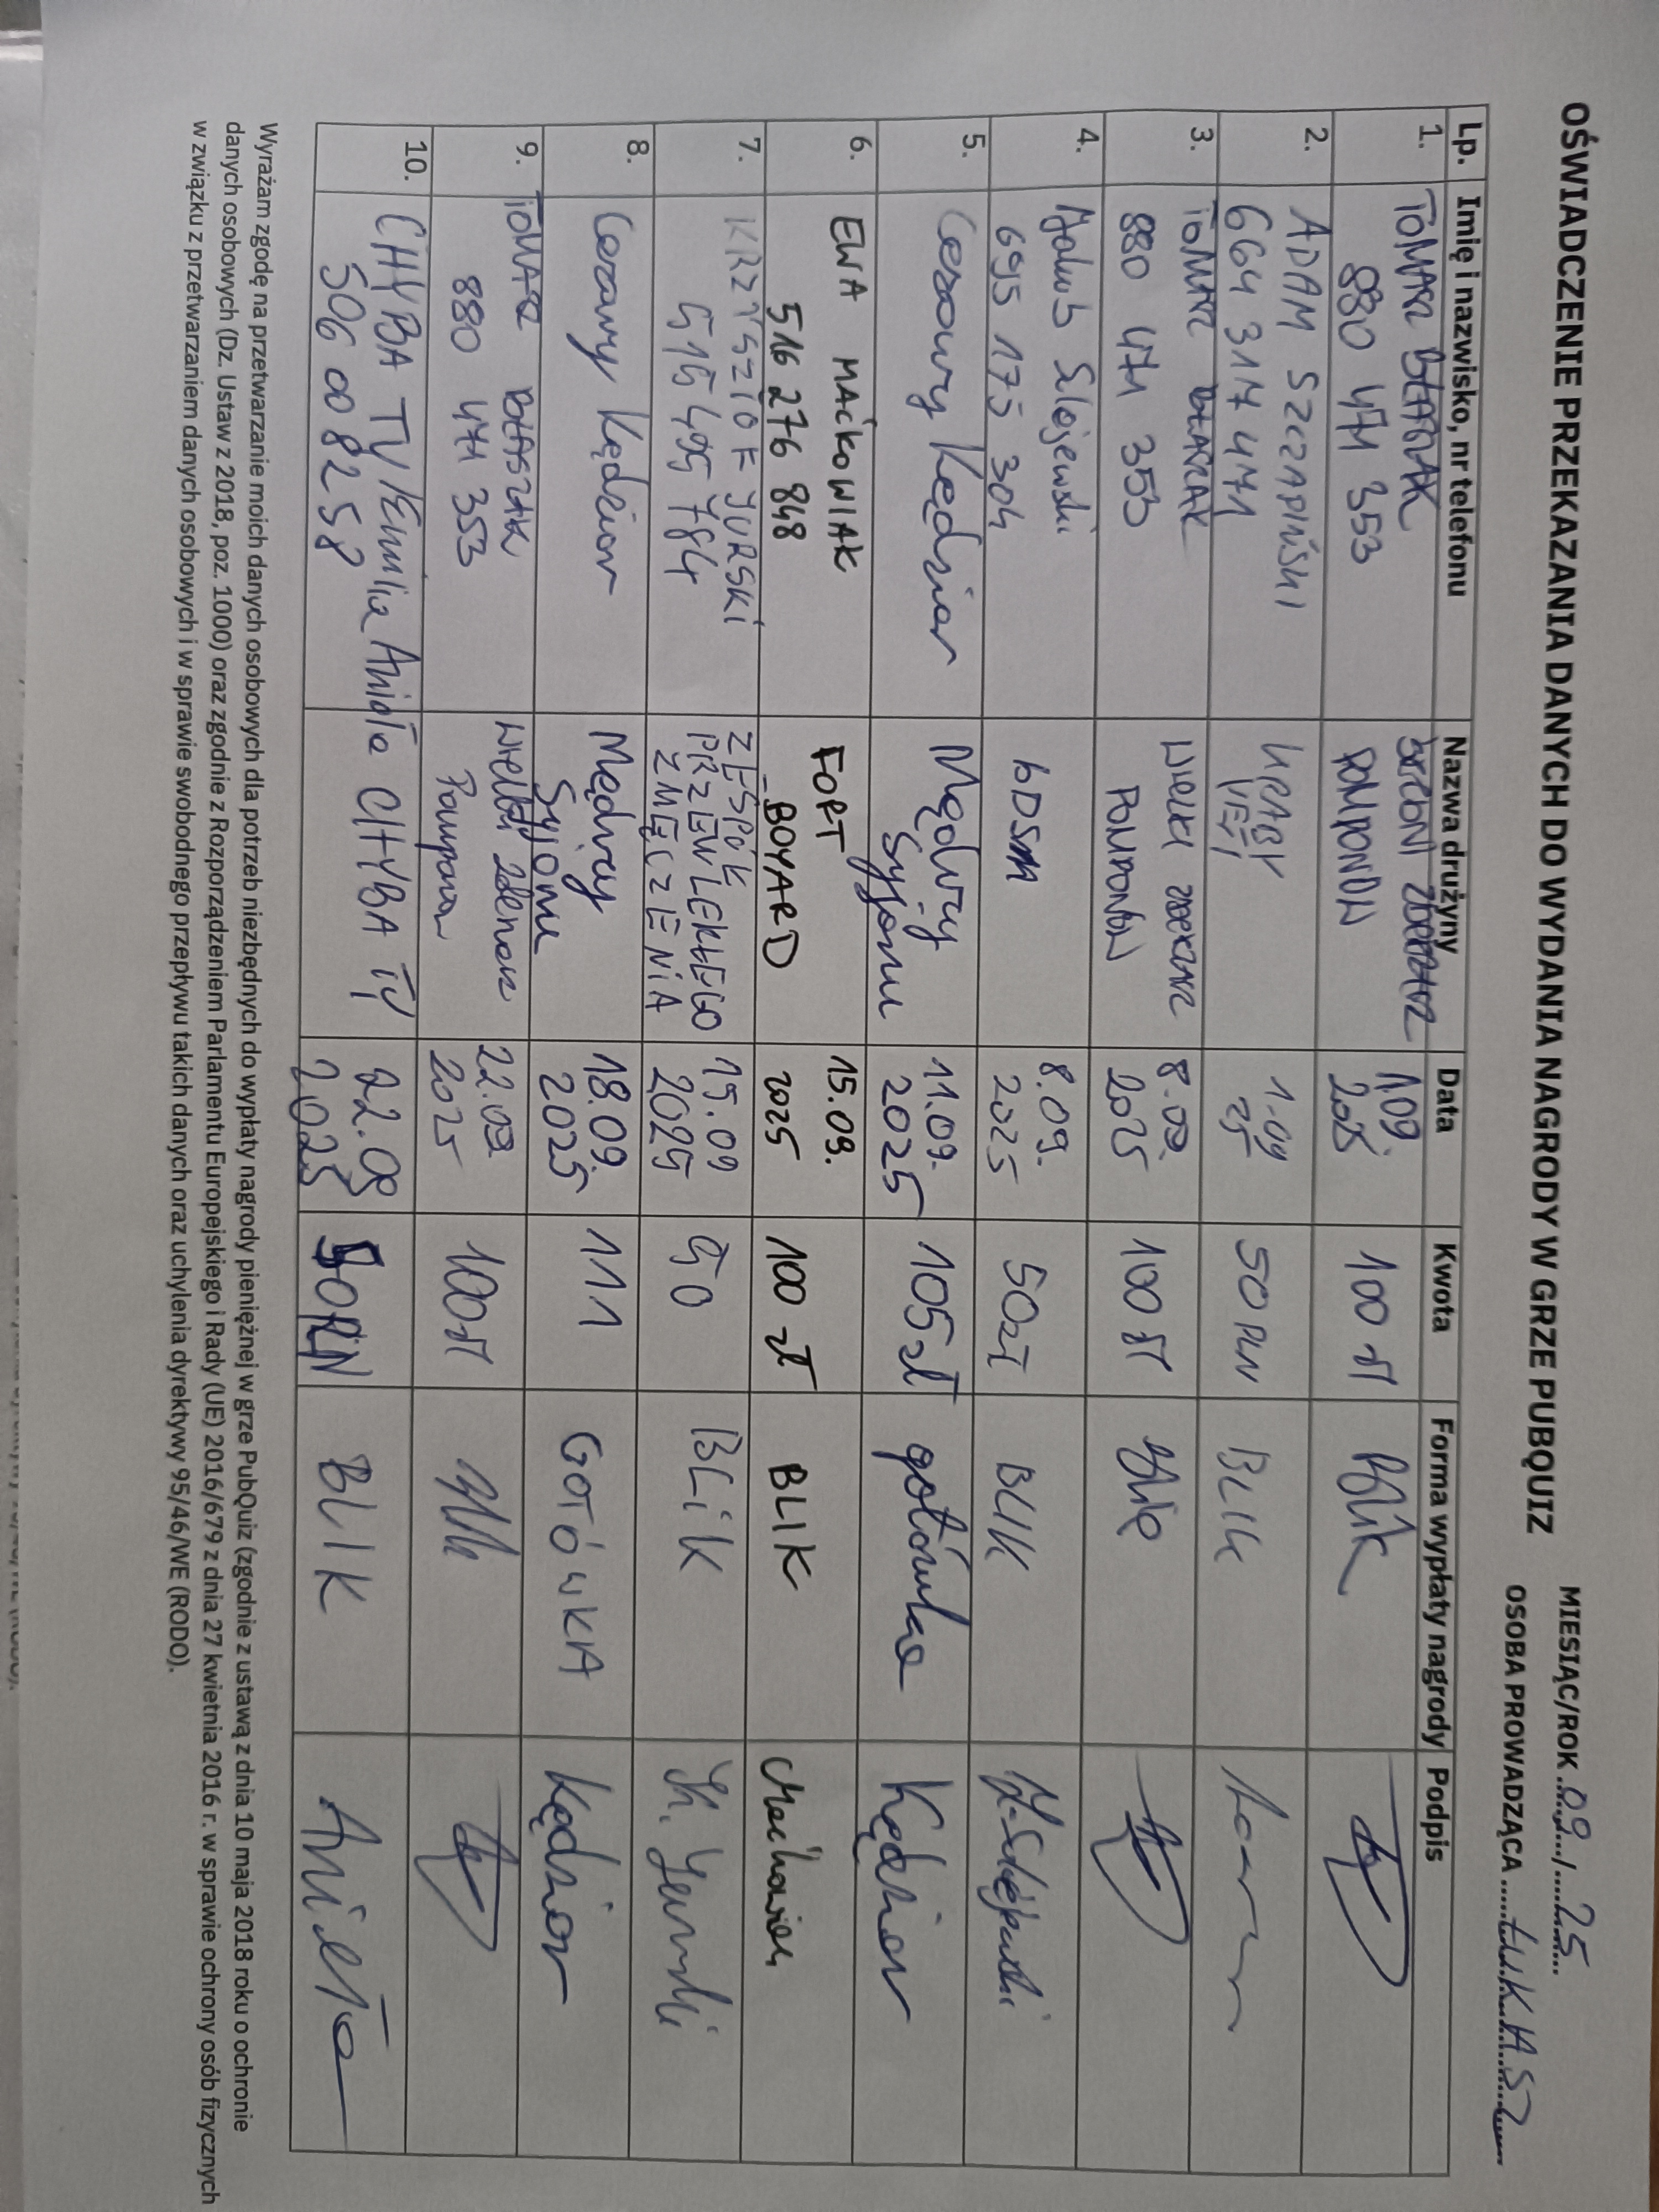 OŚWIADCZENIE PRZEKAZANIA DANYCH DO WYDANIA NAGRODY W GRZE PUBQUIZ
MIESIĄC/ROK 09/25
OSOBA PROWADZĄCA ŁUKASZ
Lp. Imię i nazwisko, nr telefonu Nazwa drużyny Data Kwota Forma wypłaty nagrody Podpis
1. TOMASZ 880 471 353 POMPONÓW 1.09. 2025 100 zł Blik
2. ADAM 664 317 471 1.09 25 50 PLN BLIK
3. TOMASZ 880 471 353 WIELKI POMPONÓW 8.09. 2025 100 zł Blik
4. Jakub 695 175 304 BDSM 8.09. 2025 50zł BLIK
5. Cezary Kędzior Mędrcy Syjonu 11.09. 2025 105zł gotówka Kędzior
6. EWA MAĆKOWIAK 516 276 848 FORT BOYARD 15.09. 2025 100 zł BLIK Maćkowiak
7. KRZYSZTOF JURSKI 515 495 784 ZESPÓŁ PRZEWLEKŁEGO ZMĘCZENIA 15.09 2025 50 BLiK K. Jurski
8. Cezary Kędzior Mędrcy Syjonu 18.09. 2025 111 GOTÓWKA Kędzior
9. TOMASZ BŁASZAK 880 471 353 Wielki 22.09 2025 100zł Blik
10. CHYBA TY/Emilia Anioła 506 008 258 CHYBA TY 22.09 2025 50PLN BLIK Anioła
Wyrażam zgodę na przetwarzanie moich danych osobowych dla potrzeb niezbędnych do wypłaty nagrody pieniężnej w grze PubQuiz (zgodnie z ustawą z dnia 10 maja 2018 roku o ochronie
danych osobowych (Dz. Ustaw z 2018, poz. 1000) oraz zgodnie z Rozporządzeniem Parlamentu Europejskiego i Rady (UE) 2016/679 z dnia 27 kwietnia 2016 r. w sprawie ochrony osób fizycznych
w związku z przetwarzaniem danych osobowych i w sprawie swobodnego przepływu takich danych oraz uchylenia dyrektywy 95/46/WE (RODO).